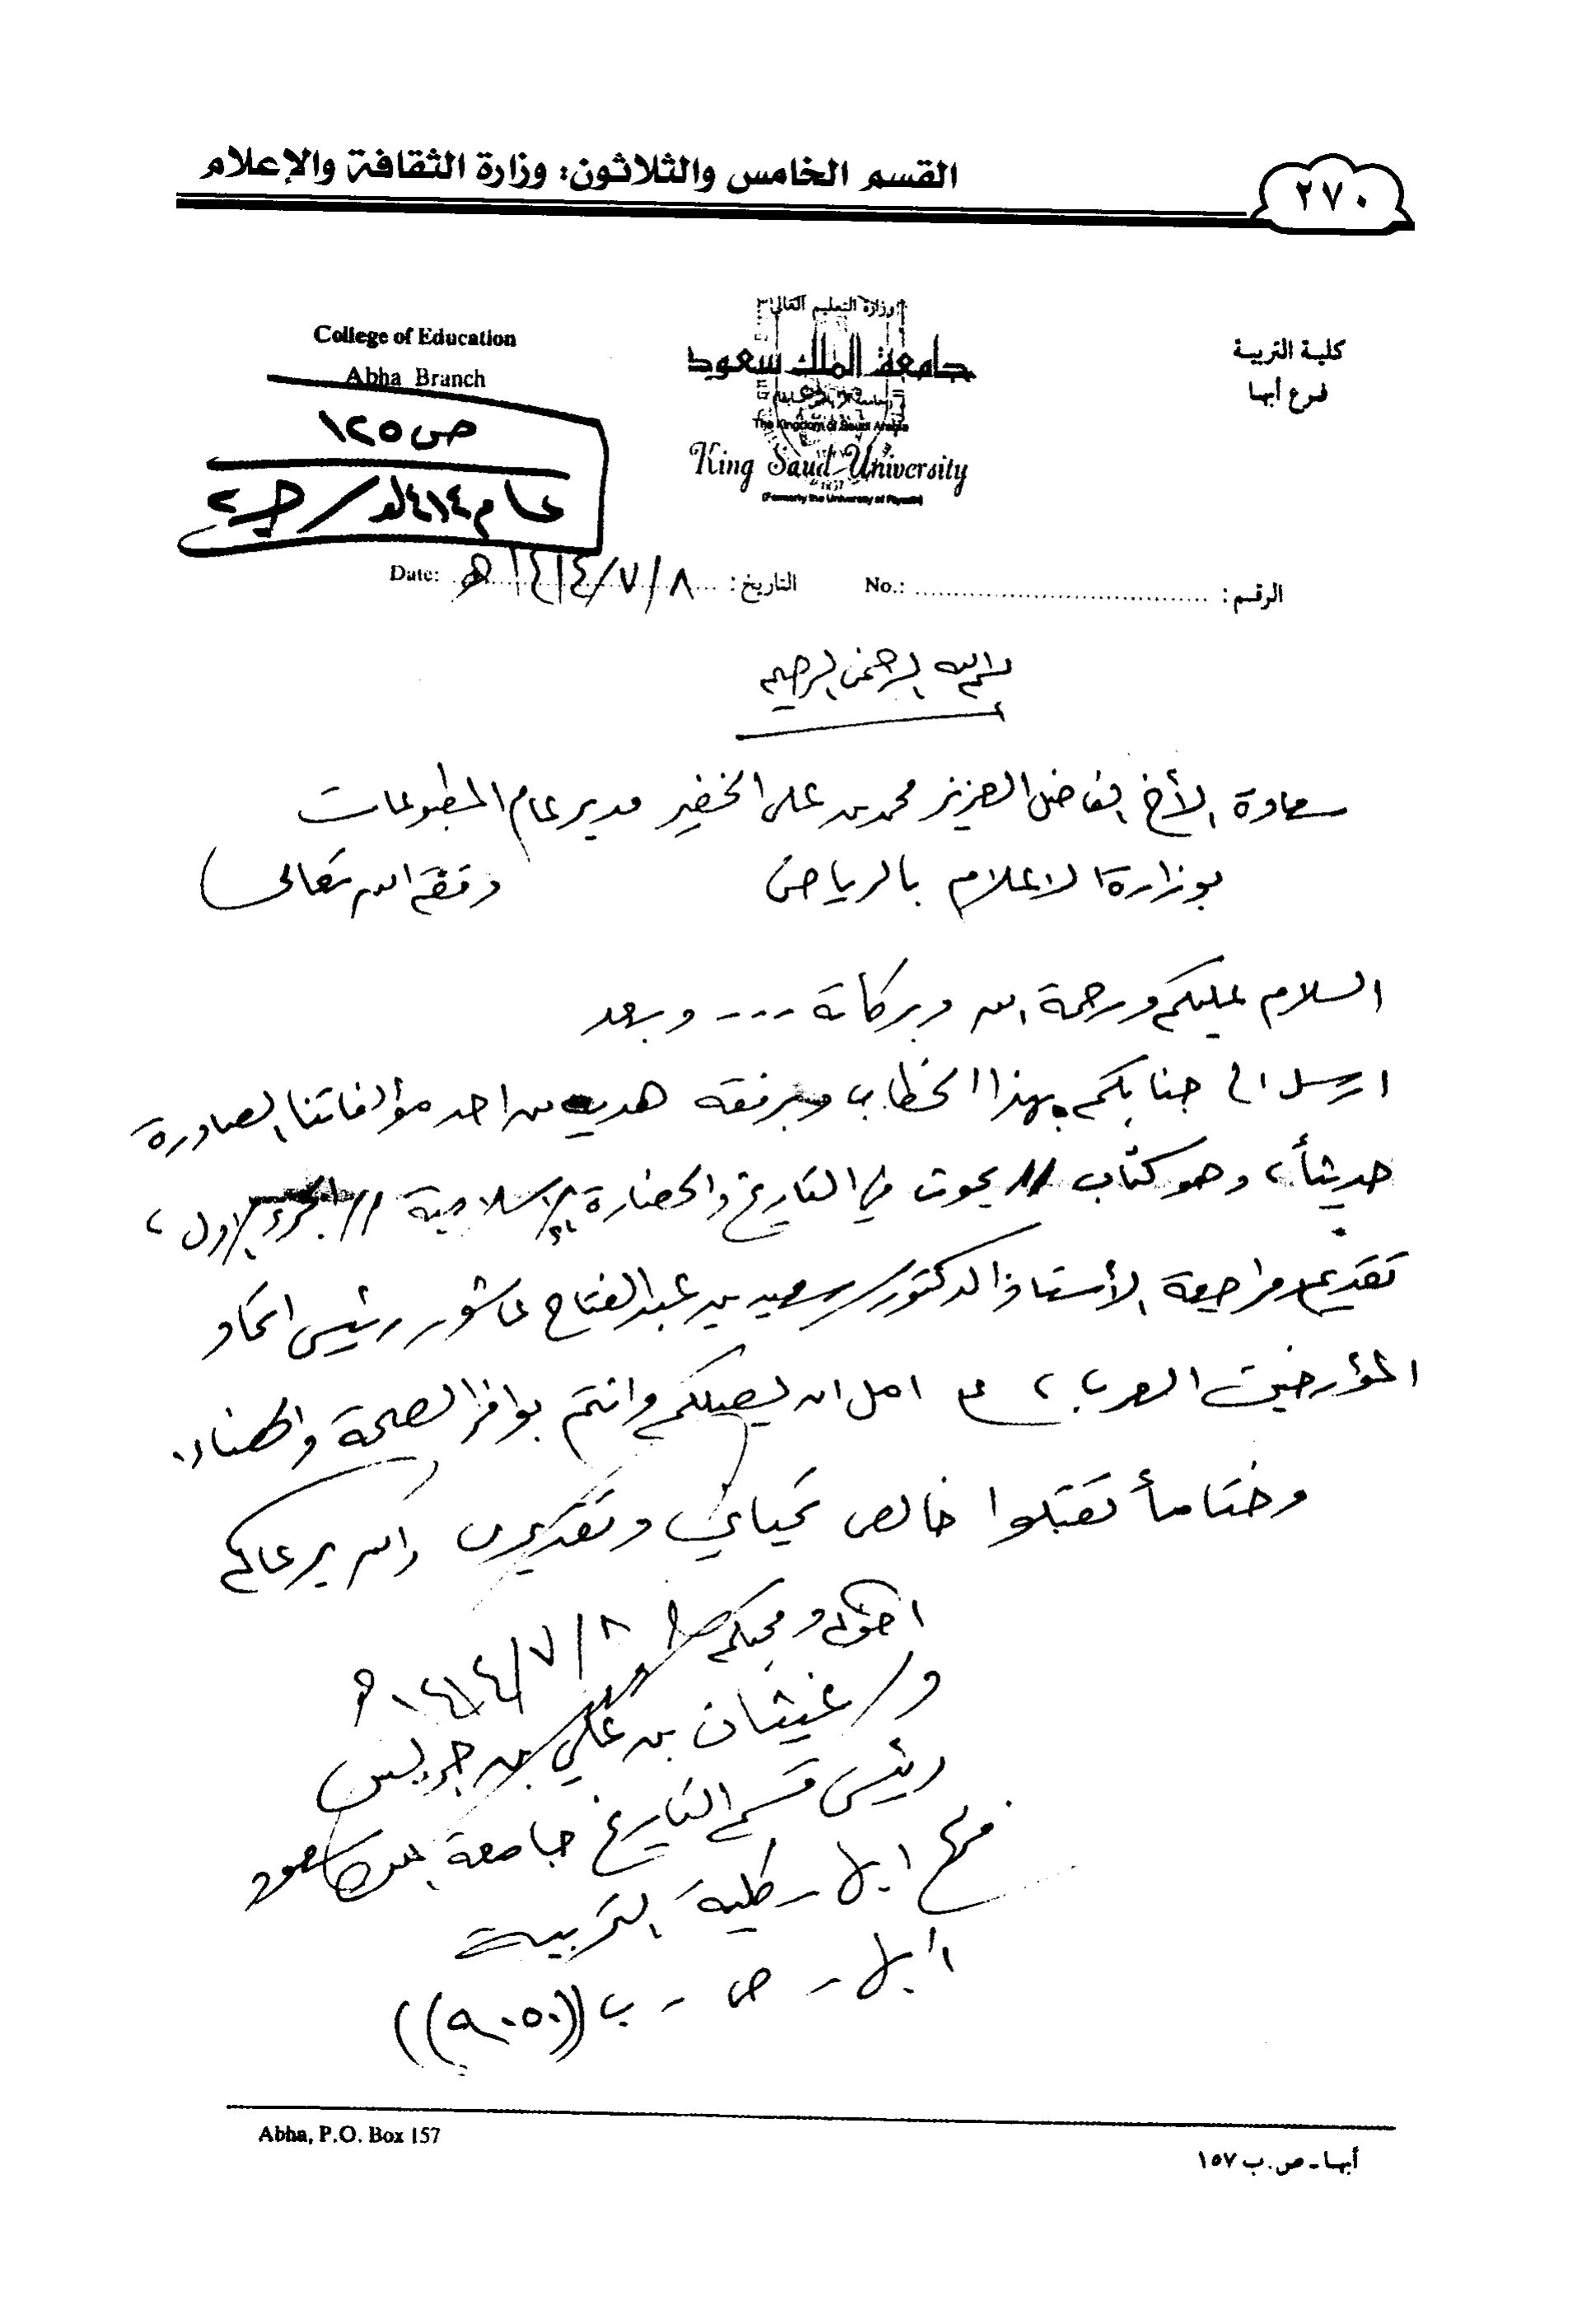 القسم الخامس والثلاثون: وزارة الثقافة والإعلام
٢٧٠
College of Education
Abha Branch
وزارة التعليم العالي
جامعة الملك سعود
The Kingdom of Saudi Arabia
King Saud University
1957
(Formerly the University of Riyadh)
كلية التربية
فرع أبها
ص١٢٥
عام ١٤١٤هـ / جـ٢
الرقم : No.:
التاريخ : ٨/٧/١٤١٤هـ Date:
بسم الله الرحمن الرحيم
سعادة الأخ الفاضل العزيز محمد بن علي الخضير مدير عام المطبوعات
بوزارة الاعلام بالرياض وفقه الله تعالى
السلام عليكم ورحمة الله وبركاته --- وبعد
ارسل الى جنابكم بهذا الخطاب وبرفقه هديه من احد مؤلفاتنا الصادرة
حديثاً، وهو كتاب // بحوث في التاريخ والحضارة الإسلامية // الجزء الاول ،
تقديم ومراجعة الأستاذ الدكتور سعيد بن عبدالفتاح عاشور رئيس اتحاد
المؤرخين العرب ، امل ان يصلكم وانتم بوافر الصحة والهناء.
وختاماً تقبلوا خالص تحياتي وتقديري والله يرعاكم
اخوكم ومحبكم
٨/٧/١٤١٤هـ
د/ غيثان بن علي بن جريس
رئيس قسم التاريخ جامعة الملك سعود
فرع ابها - كلية التربية
أبها - ص - ب ((٩٠٥٠))
Abha, P.O. Box 157
أبها - ص . ب ١٥٧